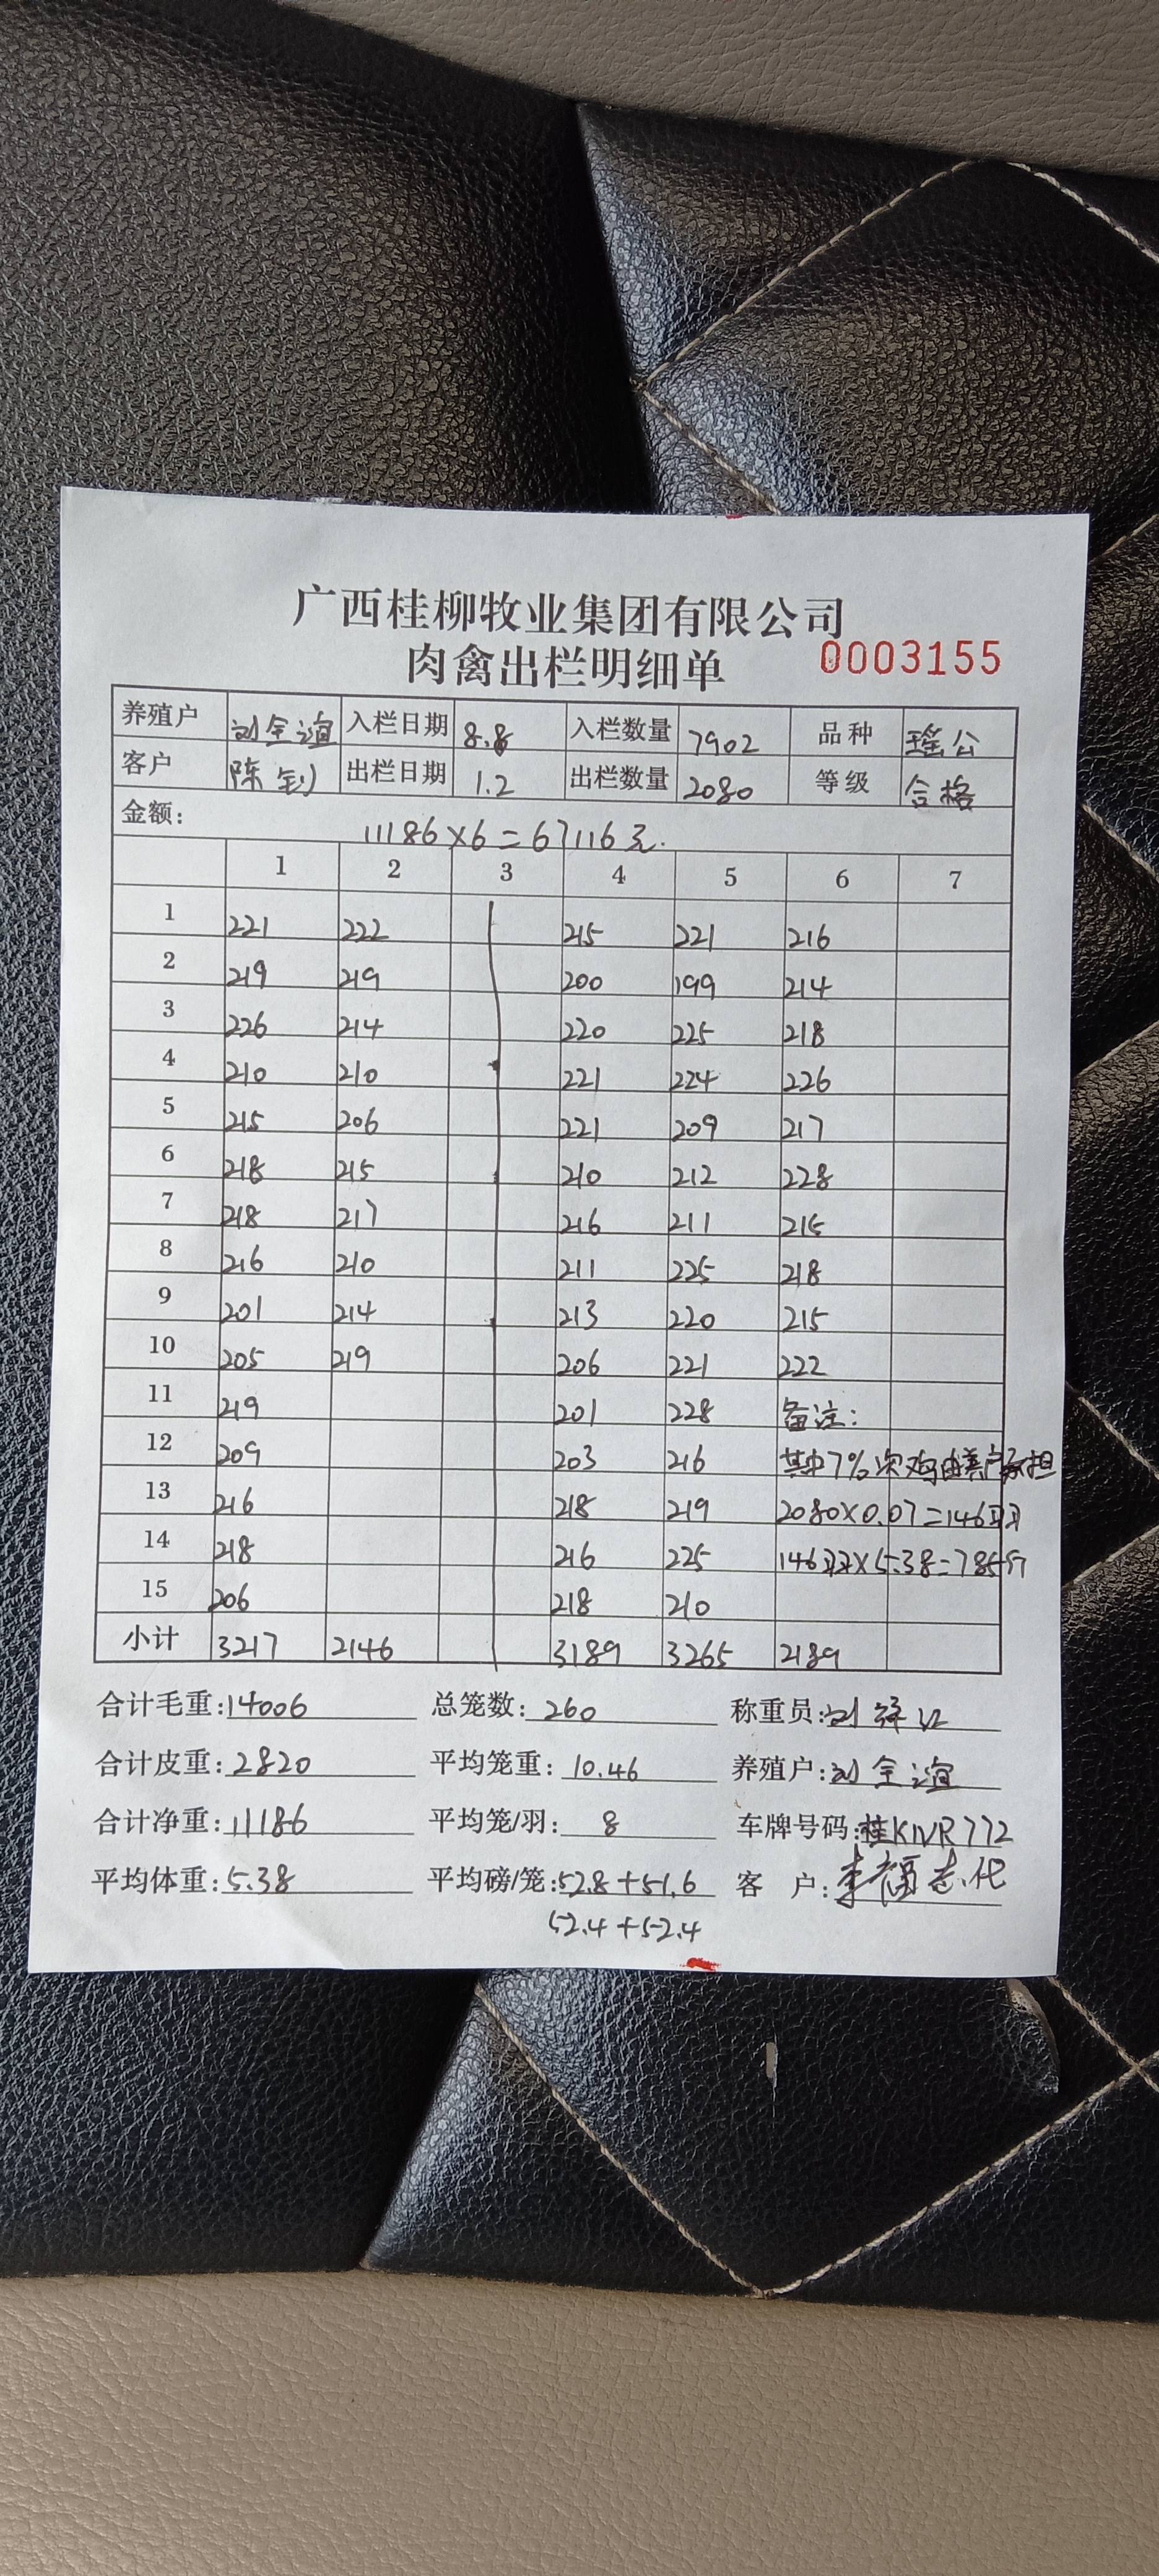 广西桂柳牧业集团有限公司
肉禽出栏明细单 0003155
养殖户 刘全谊 入栏日期 8.8 入栏数量 7902 品种 瑶公
客户 陈钊 出栏日期 1.2 出栏数量 2080 等级 合格
金额: 11186×6=67116元.
1 2 3 4 5 6 7
1 221 222 215 221 216
2 219 219 200 199 214
3 226 214 220 225 218
4 210 210 221 224 226
5 215 206 221 209 217
6 218 215 210 212 228
7 218 217 216 211 215
8 216 210 211 225 218
9 201 214 213 220 215
10 205 219 206 221 222
11 219 201 228 备注:
12 209 203 216 其中7%次鸡由养户承担
13 216 218 219 2080×0.07=146羽
14 218 216 225 146羽×5.38=785斤
15 206 218 210
小计 3217 2146 3189 3265 2189
合计毛重:14006 总笼数:260 称重员:刘
合计皮重:2820 平均笼重:10.46 养殖户:刘全谊
合计净重:11186 平均笼/羽:8 车牌号码:桂KNR772
平均体重:5.38 平均磅/笼:52.8+51.6 客户:李福志代
52.4+52.4